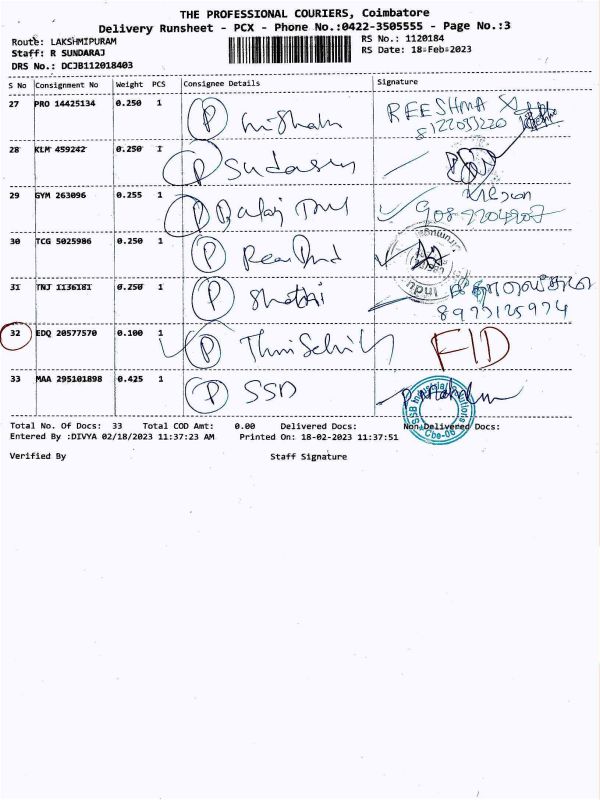 THE PROFESSIONAL COURIERS, Coimbatore
Delivery Runsheet - PCX - Phone No.:0422-3505555 - Page No.:3
Route: LAKSHMIPURAM RS No.: 1120184
Staff: R SUNDARAJ RS Date: 18-Feb-2023
DRS No.: DCJB112018403
S No Consignment No Weight PCS Consignee Details Signature
27 PRO 14425134 0.250 1 P REESHMA
8122033220
28 KLM 459242 0.250 1 P
29 GYM 263096 0.255 1 P
30 TCG 5025986 0.250 1 P
31 TNJ 1136181 0.250 1 P
8973125974
32 EDQ 20577570 0.100 1 P FID
33 MAA 295101898 0.425 1 P SSD
Total No. Of Docs: 33 Total COD Amt: 0.00 Delivered Docs: Non-Delivered Docs:
Entered By :DIVYA 02/18/2023 11:37:23 AM Printed On: 18-02-2023 11:37:51
Verified By Staff Signature